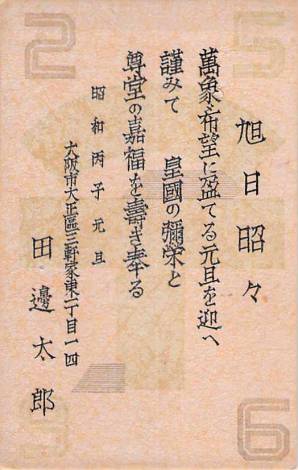 旭日昭々
萬象希望に盈てる元旦を迎へ
謹みて　皇國の彌栄と
尊堂の嘉福を壽き奉る
昭和丙子元旦
大阪市大正區三軒家東二丁目一四
田邊太郎
2
5
6